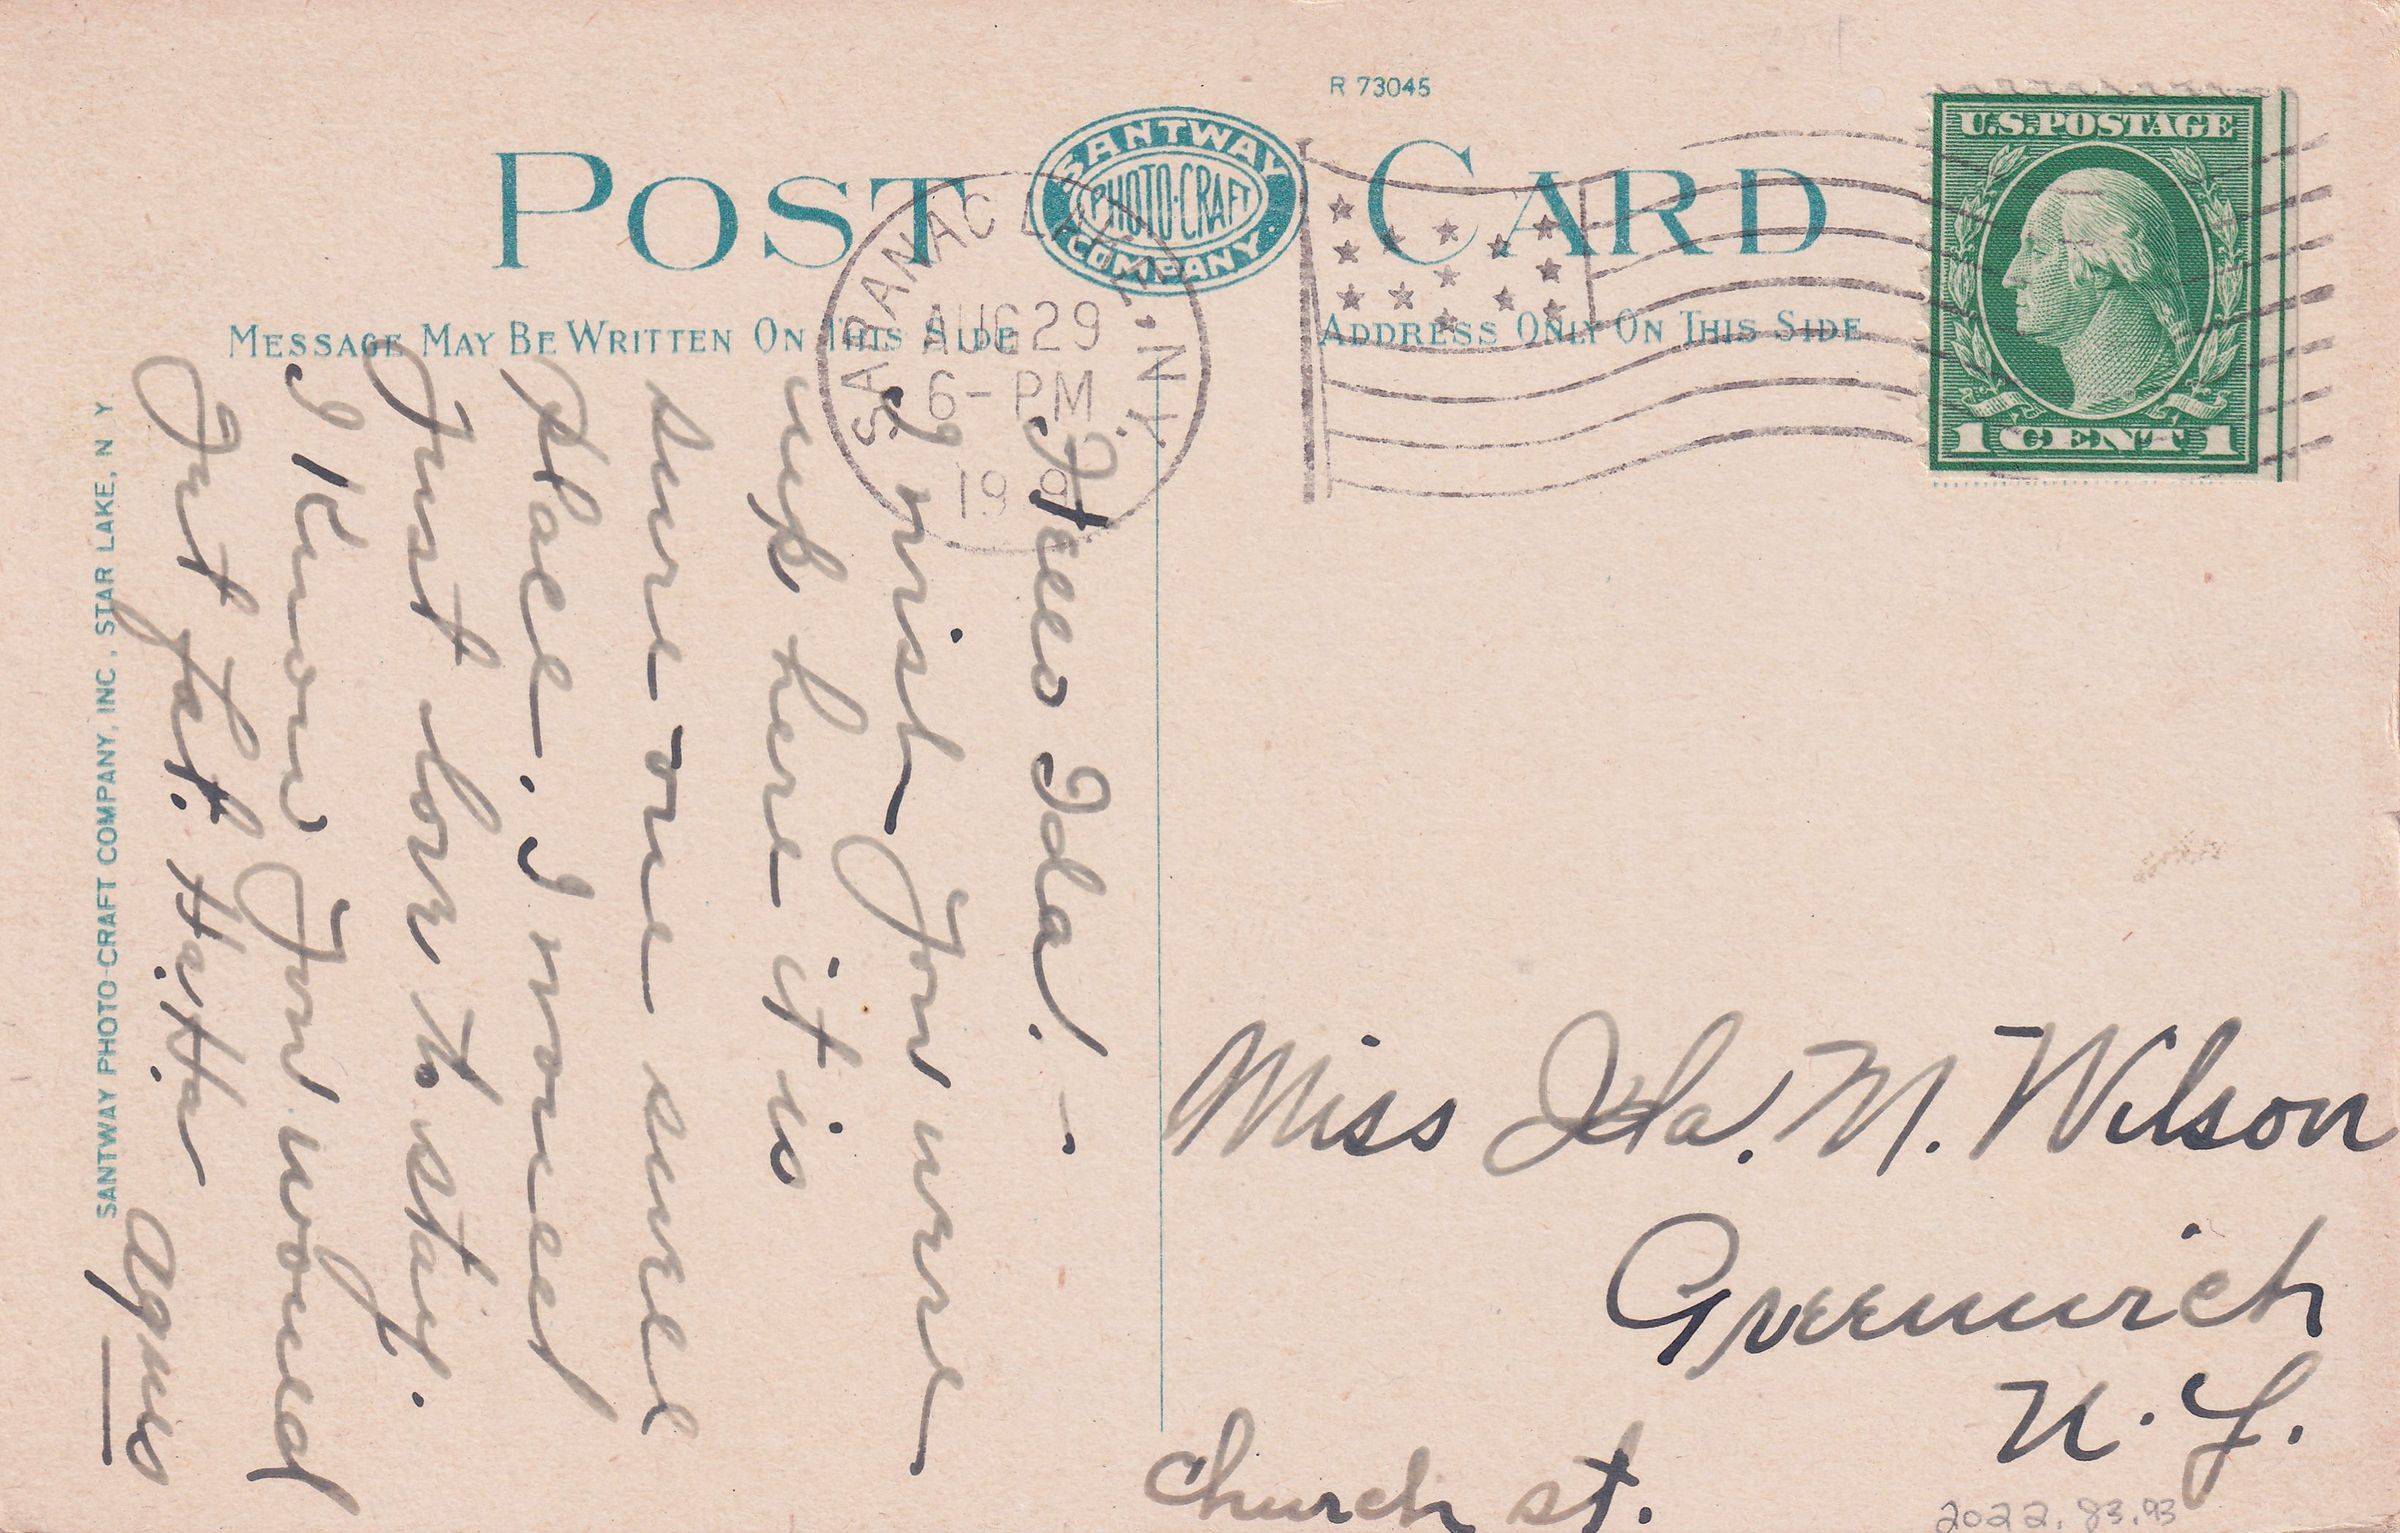 R 73045
POST CARD
SANTWAY
PHOTO-CRAFT
COMPANY
MESSAGE MAY BE WRITTEN ON THIS SIDE
ADDRESS ONLY ON THIS SIDE
SARANAC LAKE, N.Y.
AUG 29
6-PM
19 9
U.S. POSTAGE
1 CENT 1
Hello Ida! -.
I wish you were
up here it is
sure one swell
place. I would
Just love to stay.
I know you would
Just fat. Ha. Ha. Ha
Agnes
Miss Ida. M. Wilson
Greenwich
N. Y.
Church st.
2022.83.93
SANTWAY PHOTO-CRAFT COMPANY, INC., STAR LAKE, N Y.